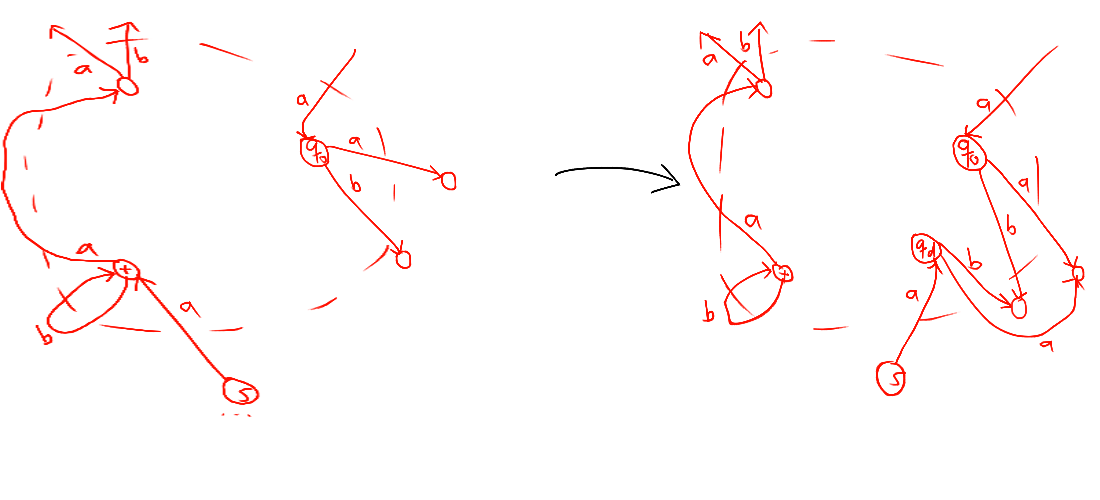 a
b
a
q₀
a
b
a
+
b
a
S
a
b
a
q₀
a
b
a
+
b
qd
b
a
a
S